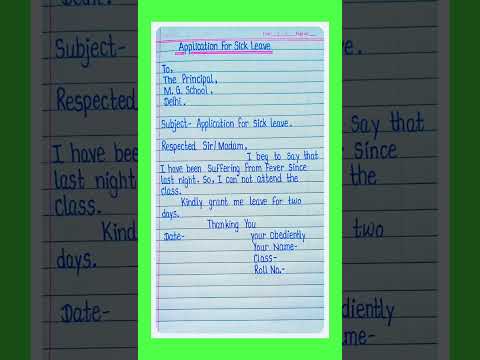 Application For Sick Leave
To,
The Principal,
M. G. School,
Delhi.
Subject- Application for Sick leave.
Respected Sir/Madam,
I beg to Say that
I have been Suffering from Fever Since
last night. So, I can not attend the
class.
Kindly grant me leave for two
days.
Thanking You
Date- your Obediently
Your Name-
Class-
Roll No.-